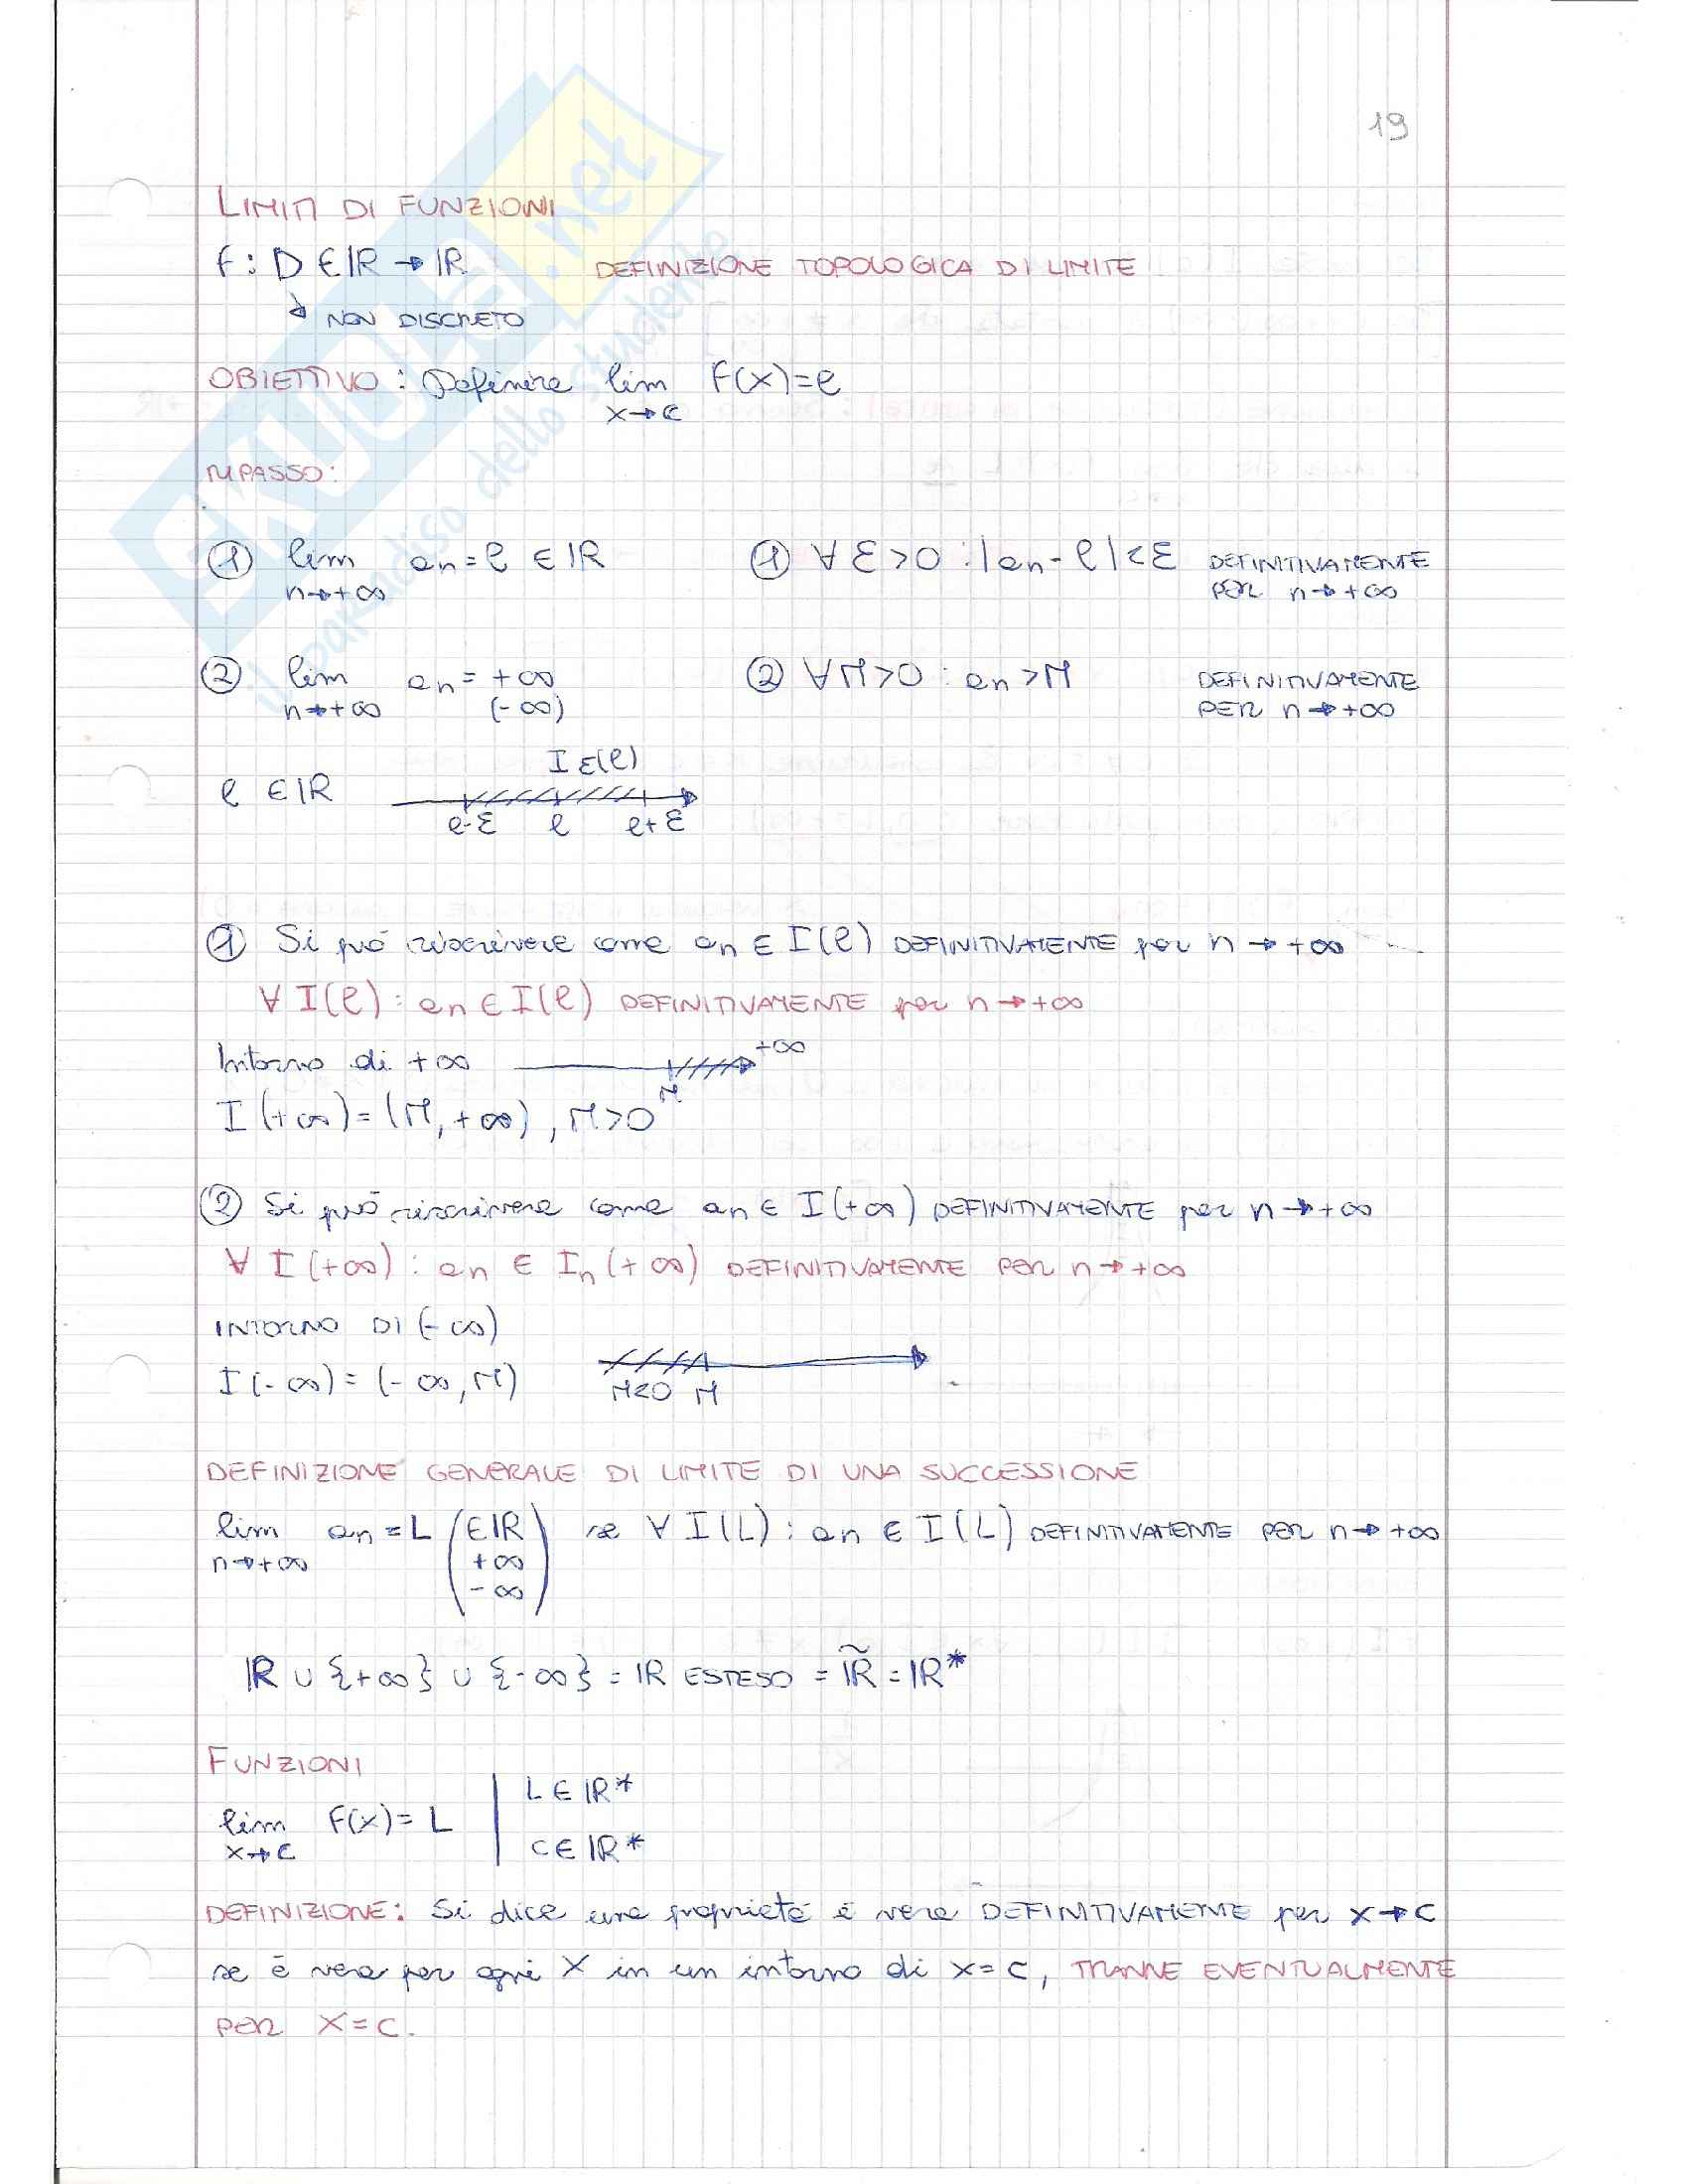 19
LIMITI DI FUNZIONI
f: D ∈ ℝ → ℝ DEFINIZIONE TOPOLOGICA DI LIMITE
↳ NON DISCRETO
OBIETTIVO: Definire lim F(x)=ℓ
x→c
RIPASSO:
① lim an=ℓ ∈ℝ ① ∀ε>0 : |an-ℓ|<ε DEFINITIVAMENTE
n→+∞ PER n→+∞
② lim an=+∞ ② ∀M>0 : an>M DEFINITIVAMENTE
n→+∞ (-∞) PER n→+∞
Iε(ℓ)
ℓ ∈ℝ
ℓ-ε ℓ ℓ+ε
① Si può riscrivere come an ∈ I(ℓ) DEFINITIVAMENTE per n→+∞
∀ I(ℓ) : an ∈ I(ℓ) DEFINITIVAMENTE per n→+∞
Intorno di +∞ +∞
M
I(+∞)=(M,+∞), M>0
② Si può riscrivere come an ∈ I(+∞) DEFINITIVAMENTE per n→+∞
∀ I(+∞) : an ∈ In(+∞) DEFINITIVAMENTE PER n→+∞
INTORNO DI (-∞)
I(-∞)=(-∞,M) M<0 M
DEFINIZIONE GENERALE DI LIMITE DI UNA SUCCESSIONE
lim an=L (∈ℝ se ∀ I(L) : an ∈ I(L) DEFINITIVAMENTE PER n→+∞
n→+∞ +∞
-∞)
ℝ ∪ {+∞} ∪ {-∞} = ℝ ESTESO = ℝ̃ = ℝ*
FUNZIONI
lim F(x)=L | L∈ℝ*
x→c c∈ℝ*
DEFINIZIONE: Si dice una proprietà è vera DEFINITIVAMENTE per x→c
se è vera per ogni x in un intorno di x=c, TRANNE EVENTUALMENTE
PER x=c.
SKUOLA.net
il paradiso dello studente